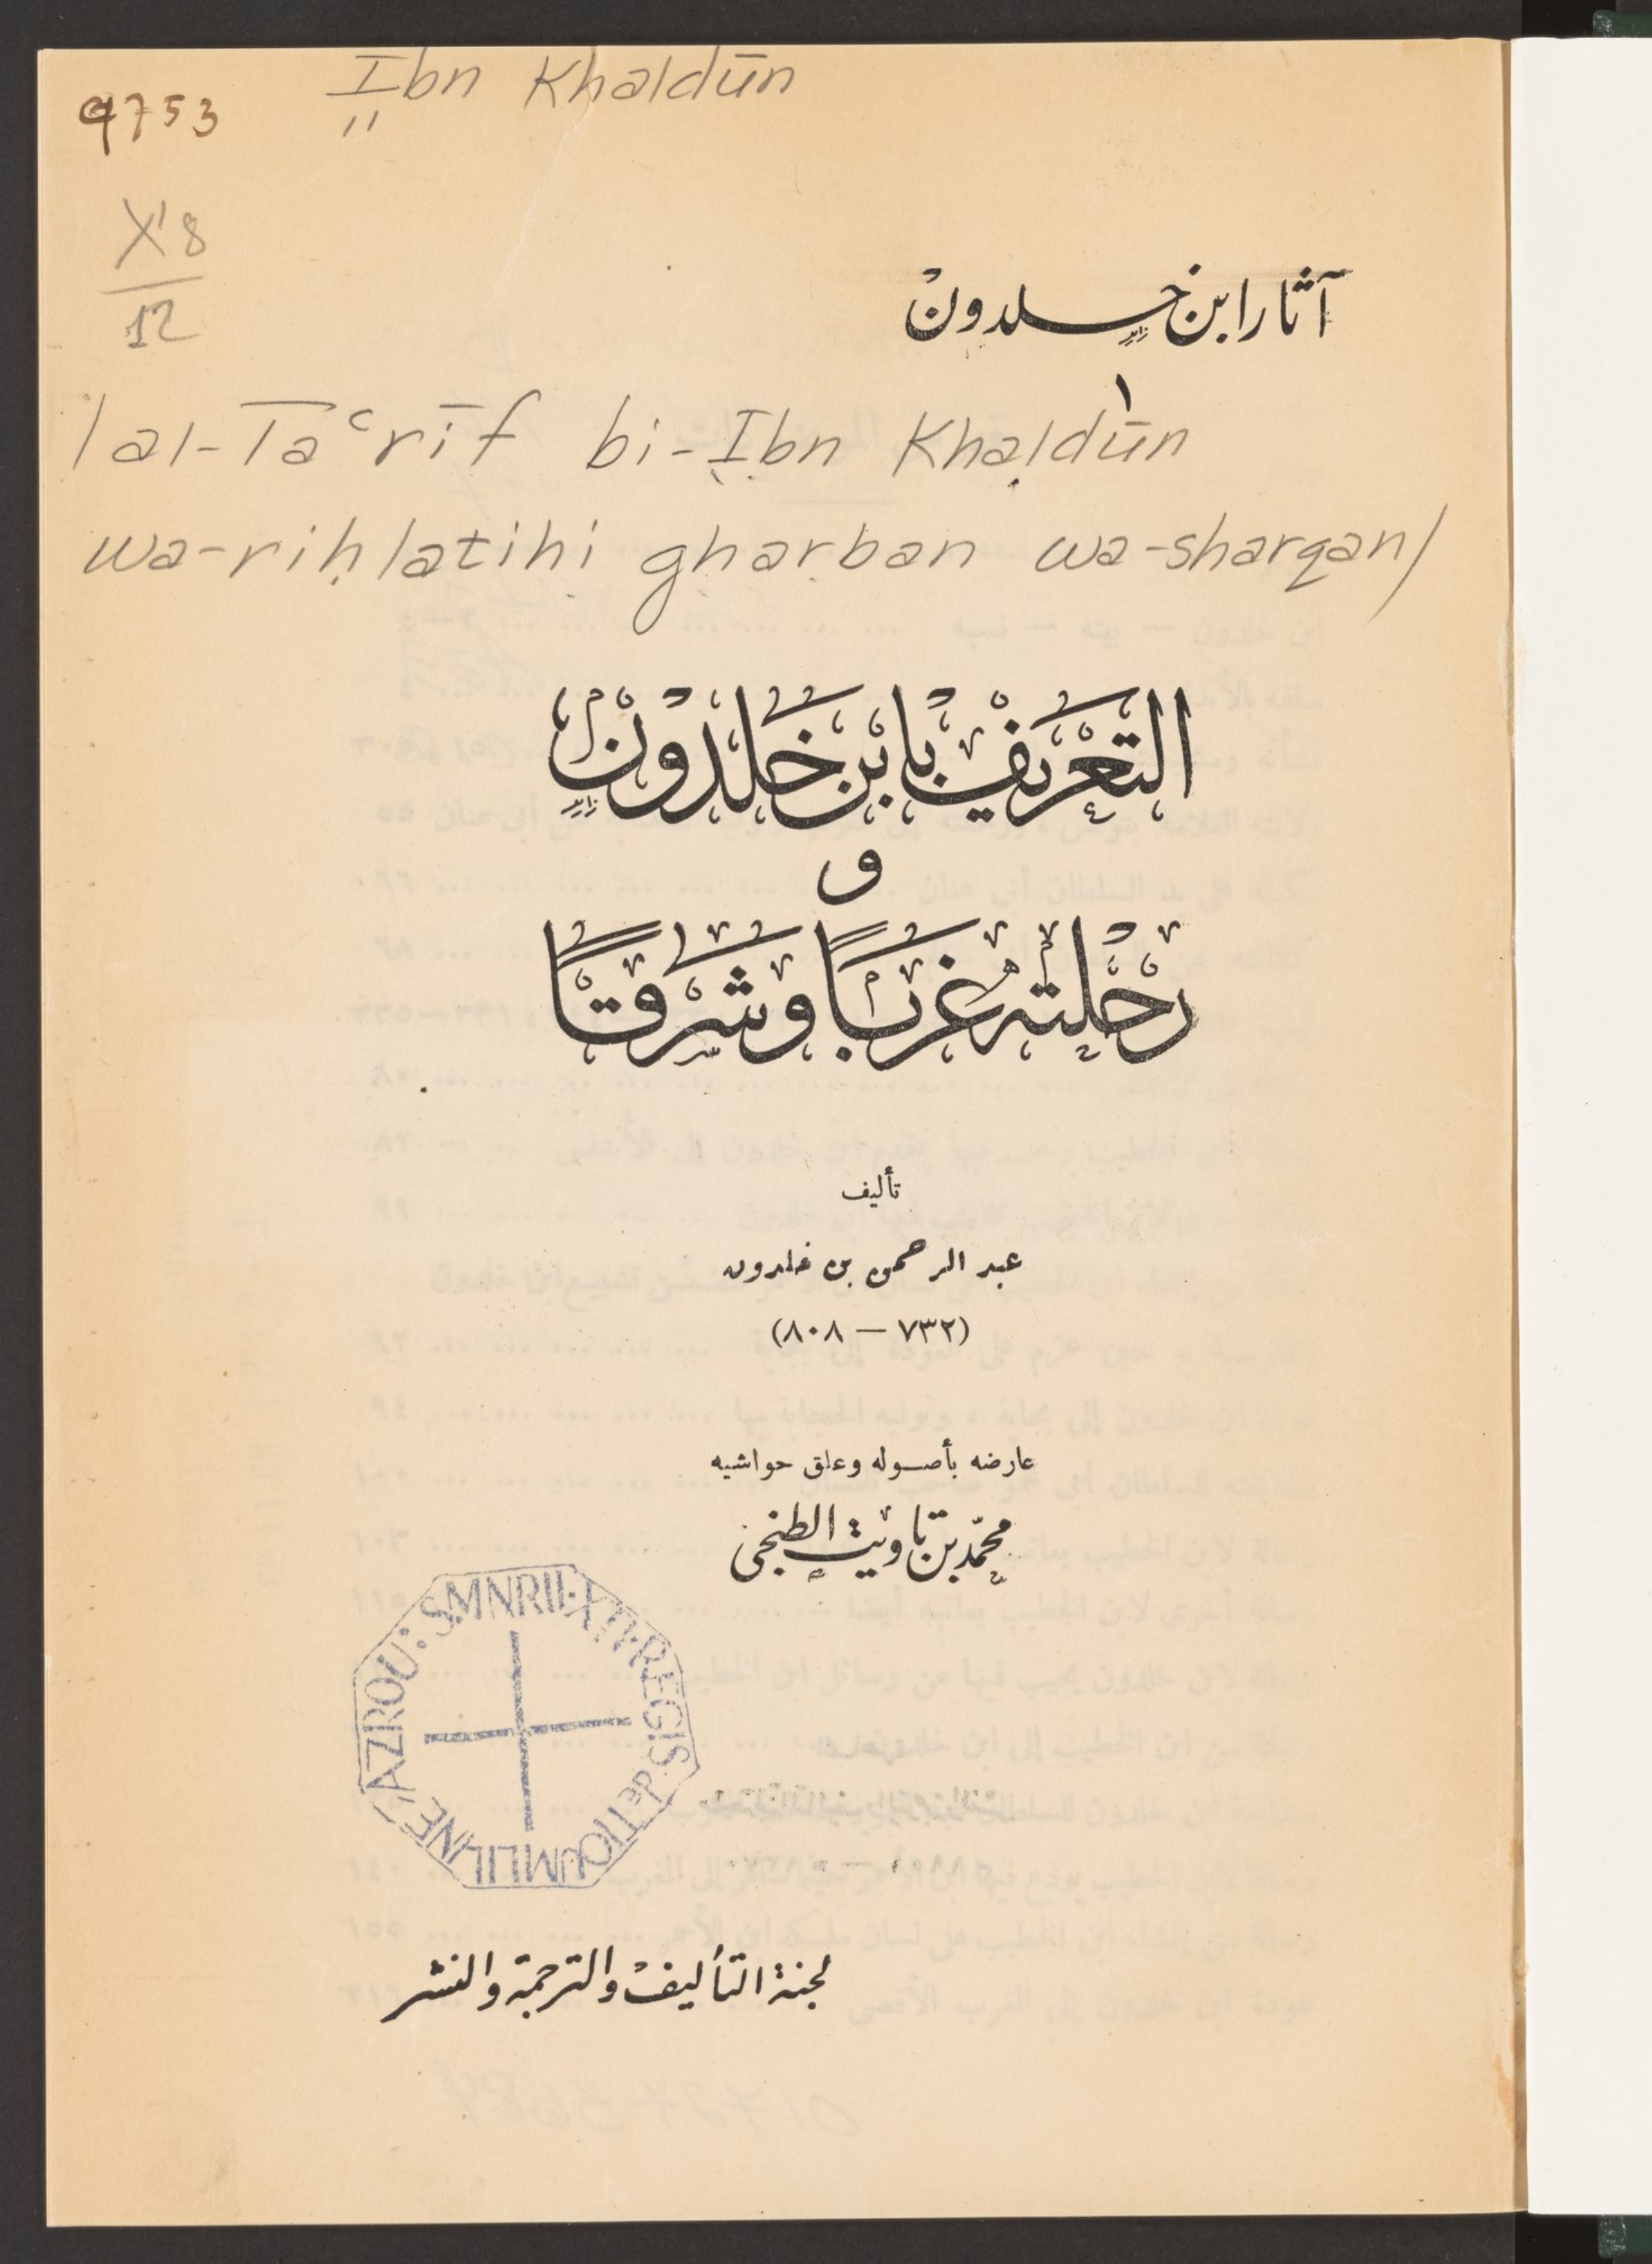 Ibn Khaldūn
9753
X'8
12
آثار ابن خلدون
١
/al-Taʿrīf bi-Ibn Khaldūn
wa-riḥlatihi gharban wa-sharqan/
التَّعْرِيْفُ بِابْنِ خَلْدُوْنَ
و
رِحْلَتُه غَرْبًا وَشَرْقًا
تأليف
عبد الرحمن بن خلدون
(٧٣٢ — ٨٠٨)
عارضه بأصوله وعلق حواشيه
محمّد بن تاويت الطنجى
AZROU: S.MNRII·XTI·REGIS·de TIOUMLILINE
لجنة التأليف والترجمة والنشر